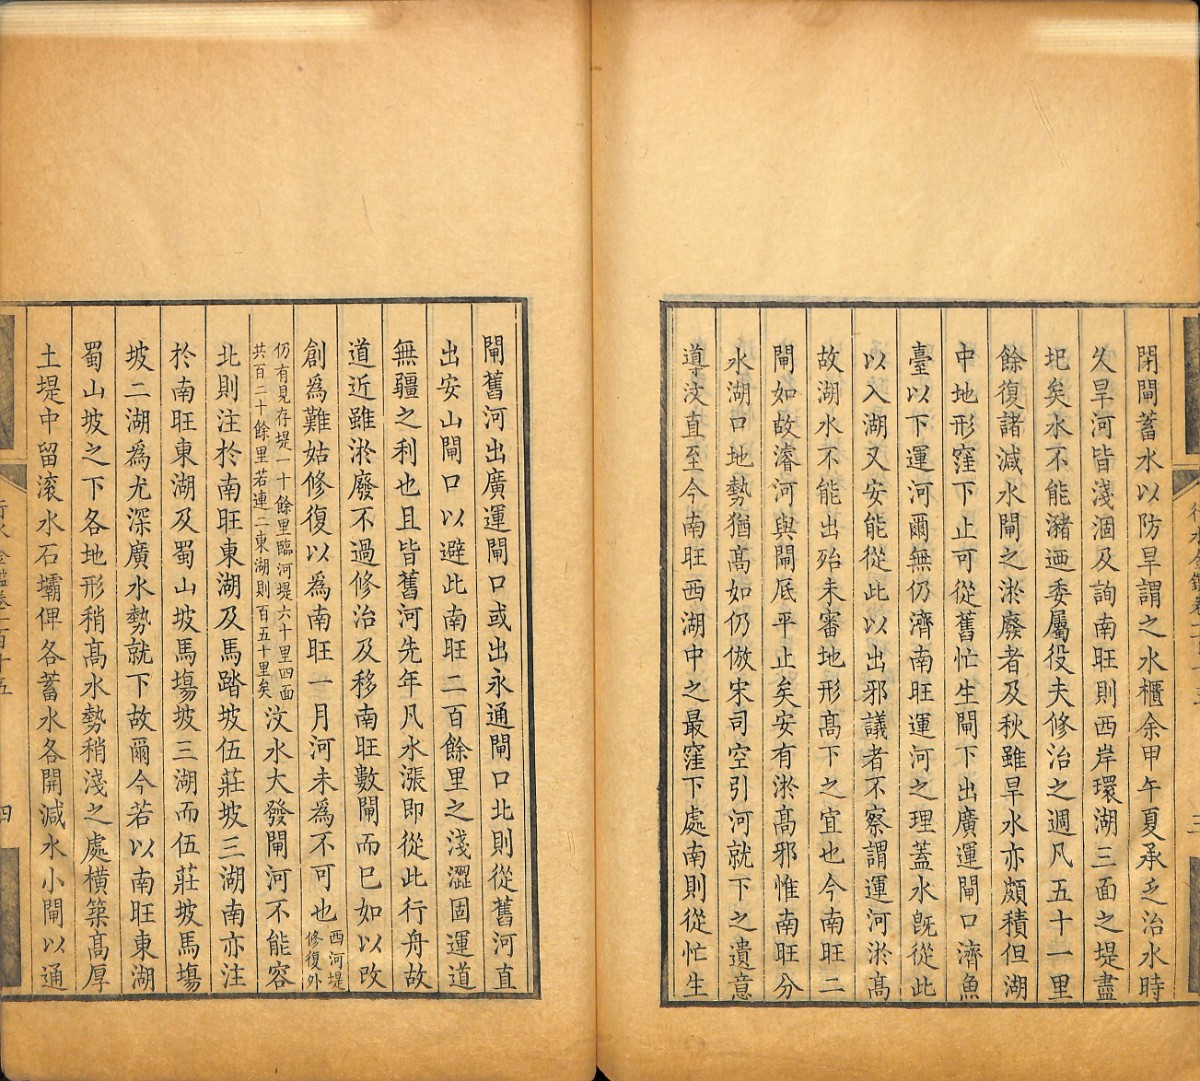 閉閘蓄水以防旱謂之水櫃余甲午夏承乏治水時
久旱河皆淺涸及詢南旺則西岸環湖三面之堤盡
圮矣水不能瀦廼委屬役夫修治之週凡五十一里
餘復諸減水閘之淤廢者及秋雖旱水亦頗積但湖
中地形窪下止可從舊忙生閘下出廣運閘口濟魚
臺以下運河爾無仍濟南旺運河之理蓋水旣從此
以入湖又安能從此以出邪議者不察謂運河淤髙
故湖水不能出殆未審地形髙下之宜也今南旺二
閘如故濬河與閘底平止矣安有淤髙邪惟南旺分
水湖口地勢猶髙如仍倣宋司空引河就下之遺意
導汶直至今南旺西湖中之最窪下處南則從忙生
閘舊河出廣運閘口或出永通閘口北則從舊河直
出安山閘口以避此南旺二百餘里之淺澀固運道
無疆之利也且皆舊河先年凡水漲即從此行舟故
道近雖淤廢不過修治及移南旺數閘而巳如以改
創為難姑修復以為南旺一月河未為不可也西河堤修復外
仍有見存堤一十餘里臨河堤六十里四面共百二十餘里若連二東湖則百五十里矣汶水大發閘河不能容
北則注於南旺東湖及馬踏坡伍莊坡三湖南亦注
於南旺東湖及蜀山坡馬塲坡三湖而伍莊坡馬塲
坡二湖爲尤深廣水勢就下故爾今若以南旺東湖
蜀山坡之下各地形稍髙水勢稍淺之處橫築髙厚
土堤中留滚水石壩俾各蓄水各開減水小閘以通
四